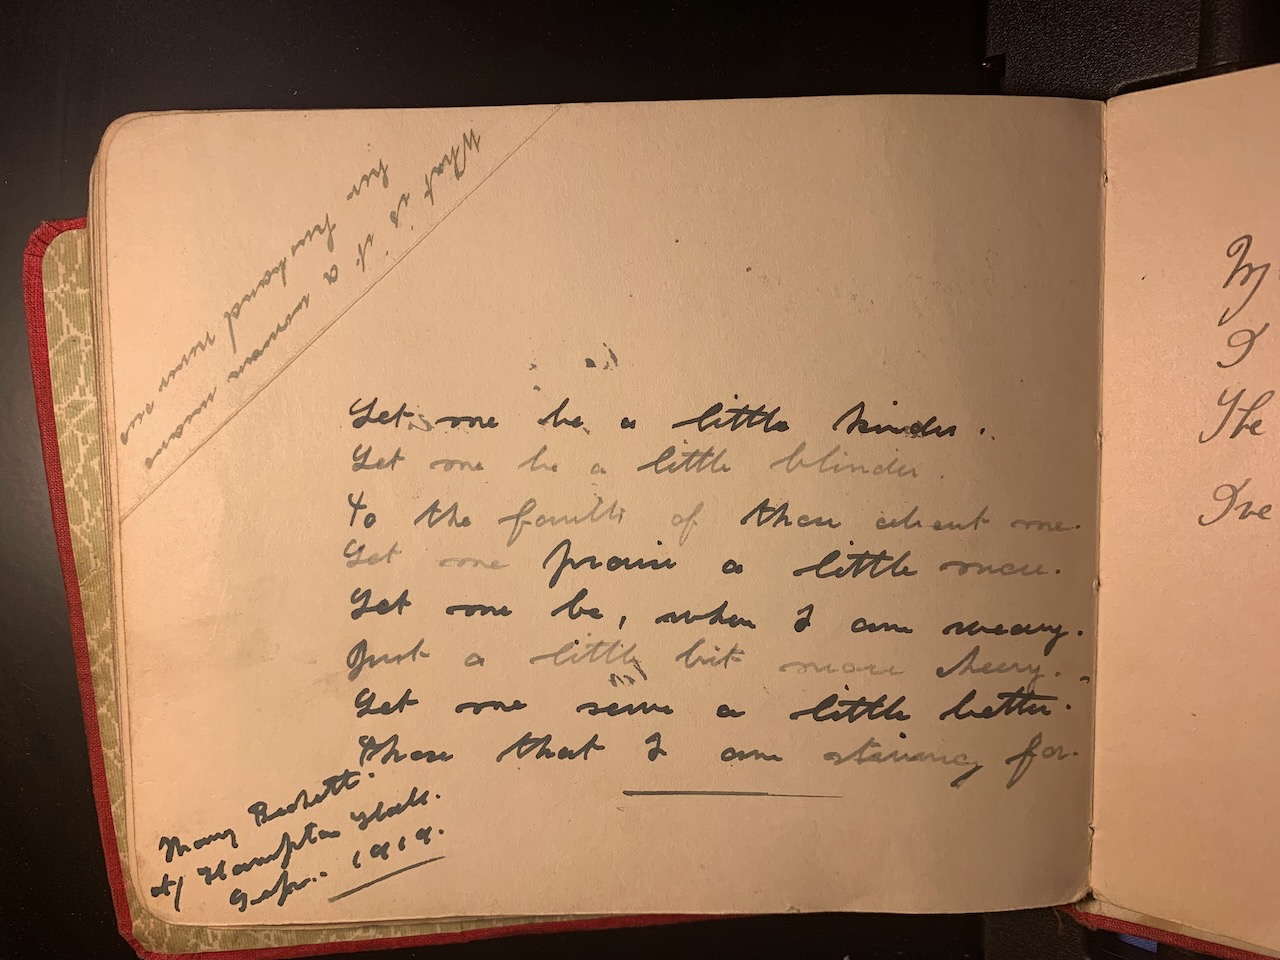 What is it a woman wears
her husband never sees
Let me be a little kinder.
Let me be a little blinder.
To the faults of those about me.
Let me praise a little more.
Let me be, when I am weary.
Just a little bit more cheery.
Let me serve a little better.
Those that I am striving for.
Mary Beckett.
Hampton
1919.
My
I
The
I've